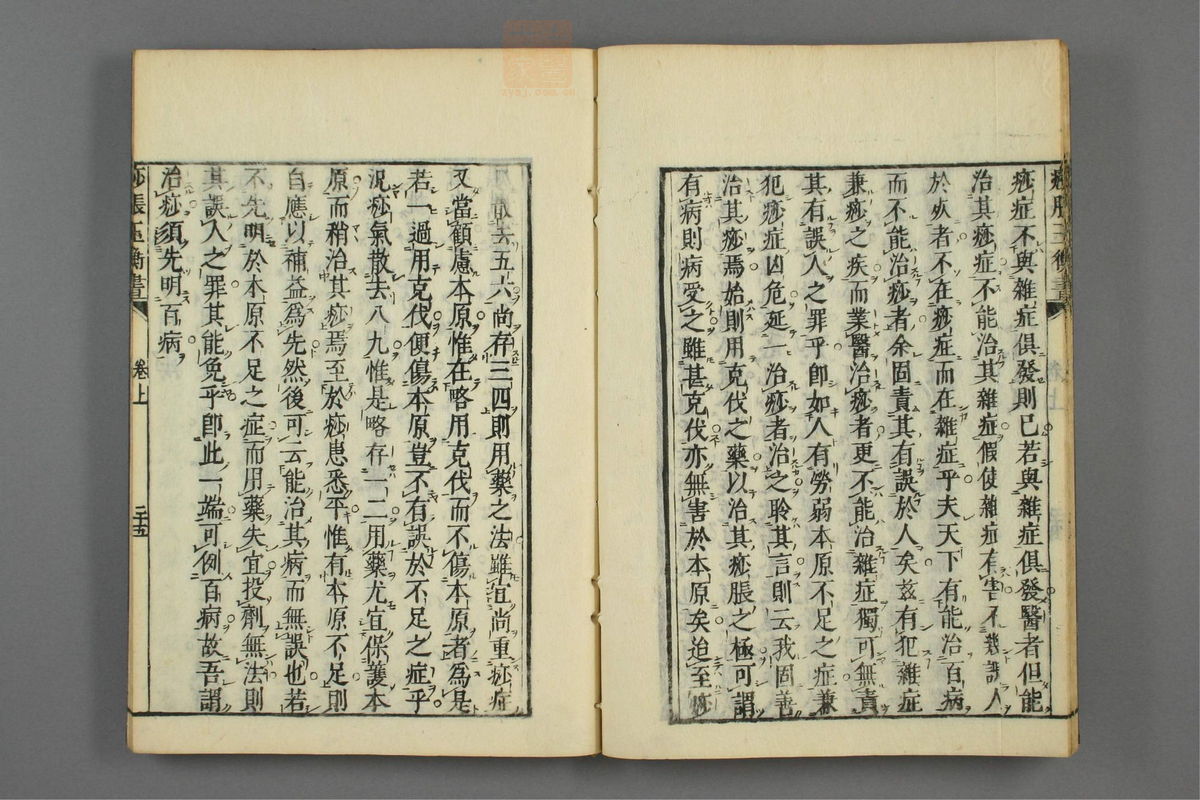 痧症不與雜症俱發則已若與雜症俱發醫者但能
治其痧症不能治其雜症假使雜症有害不幾誤人
於死者不在痧症而在雜症乎夫天下有能治百病
而不能治痧者余固責其有誤於人矣茲有犯雜症
兼痧之疾而業醫治痧者更不能治雜症獨可無責
其有誤人之罪乎卽如人有勞弱本原不足之症兼
犯痧症凶危延一治痧者治之聆其言則云我固善
治其痧焉始則用克伐之藥以治其痧脹之極可謂
有病則病受之雖甚克伐亦無害於本原矣迨至痧
散去五六尚存三四則用藥之法雖宜尚重痧症
又當顧慮本原惟在略用克伐而不傷本原者為是
若一過用克伐便傷本原豈不有誤於不足之症乎
況痧氣散去八九惟是略存一二用藥尤宜保護本
原而稍治其痧焉至於痧患悉平惟有本原不足則
自應以補益為先然後可云能治其病而無誤也若
不先明於本原不足之症而用藥失宜投劑無法則
其誤人之罪其能免乎卽此一端可例百病故吾謂
治痧須先明百病
痧脹玉衡書
卷上
二十五
zysj.com.cn